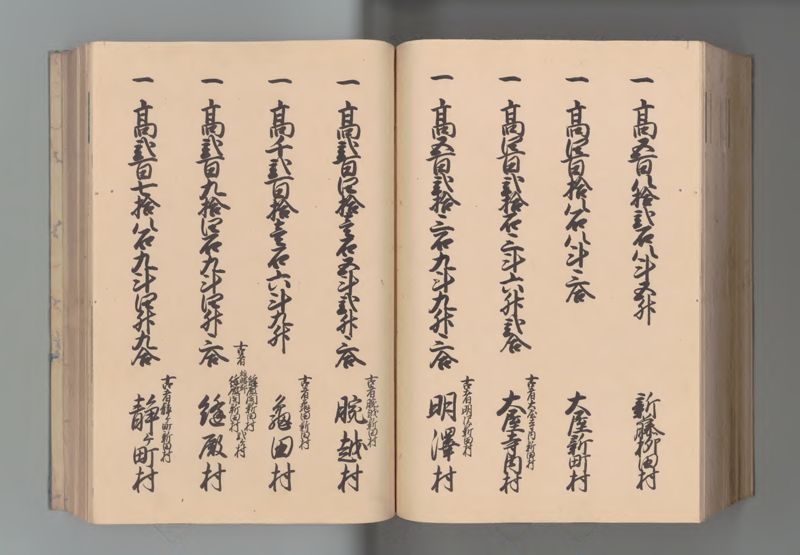 一 髙五百八拾弐石八斗五升 新藤柳田村
一 髙四百拾八石八斗三合 大屋新町村
一 髙四百弐拾石三斗六升弐合 古者大屋寺内新田村 大屋寺内村
一 髙五百弐拾三石九斗九升三合 古者明沢新田村 明澤村
一 髙弐百四拾壱石五斗弐升三合 古者腕越新田村 腕越村
一 髙千弐百拾壱石六斗九升 古者亀田新田村 亀田村
一 髙弐百九拾四石九斗四升三合 古者 縫殿村
一 髙弐百七拾八石九斗四升九合 古者静ヶ町新田村 静ヶ町村